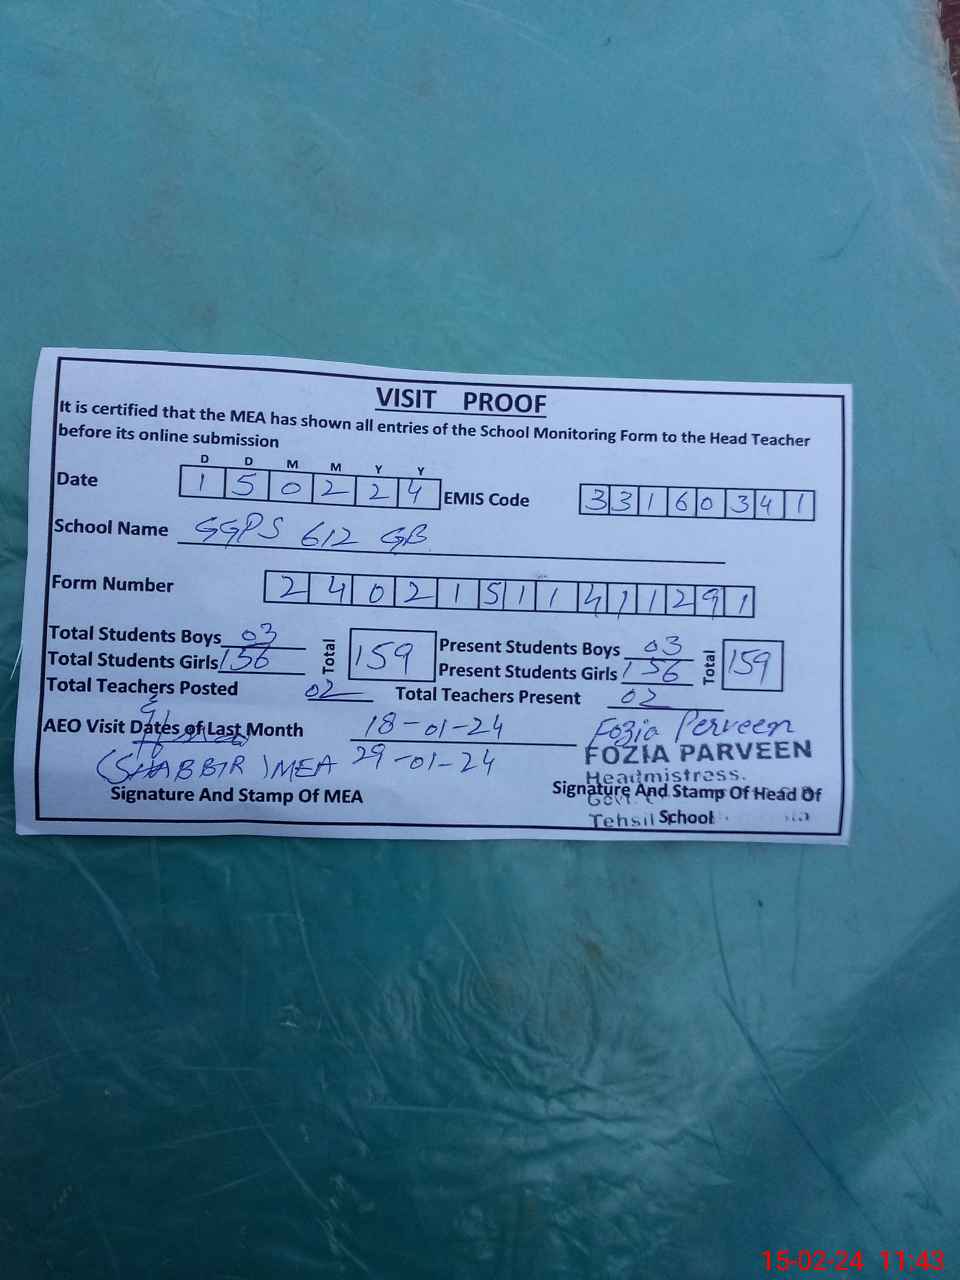 VISIT PROOF
It is certified that the MEA has shown all entries of the School Monitoring Form to the Head Teacher
before its online submission
D D M M Y Y
Date 1 5 0 2 2 4 EMIS Code 3 3 1 6 0 3 4 1
School Name GGPS 612 GB
Form Number 2 4 0 2 1 5 1 1 4 1 1 2 9 1
Total Students Boys 03 Total 159 Present Students Boys 03 Total 159
Total Students Girls 156 Present Students Girls 156
Total Teachers Posted 02 Total Teachers Present 02
AEO Visit Dates of Last Month 18-01-24 Fozia Perveen
(SHABBIR) MEA 29-01-24 FOZIA PARVEEN
Headmistress.
Signature And Stamp Of MEA Signature And Stamp Of Head Of
Tehsil School
15-02-24 11:43